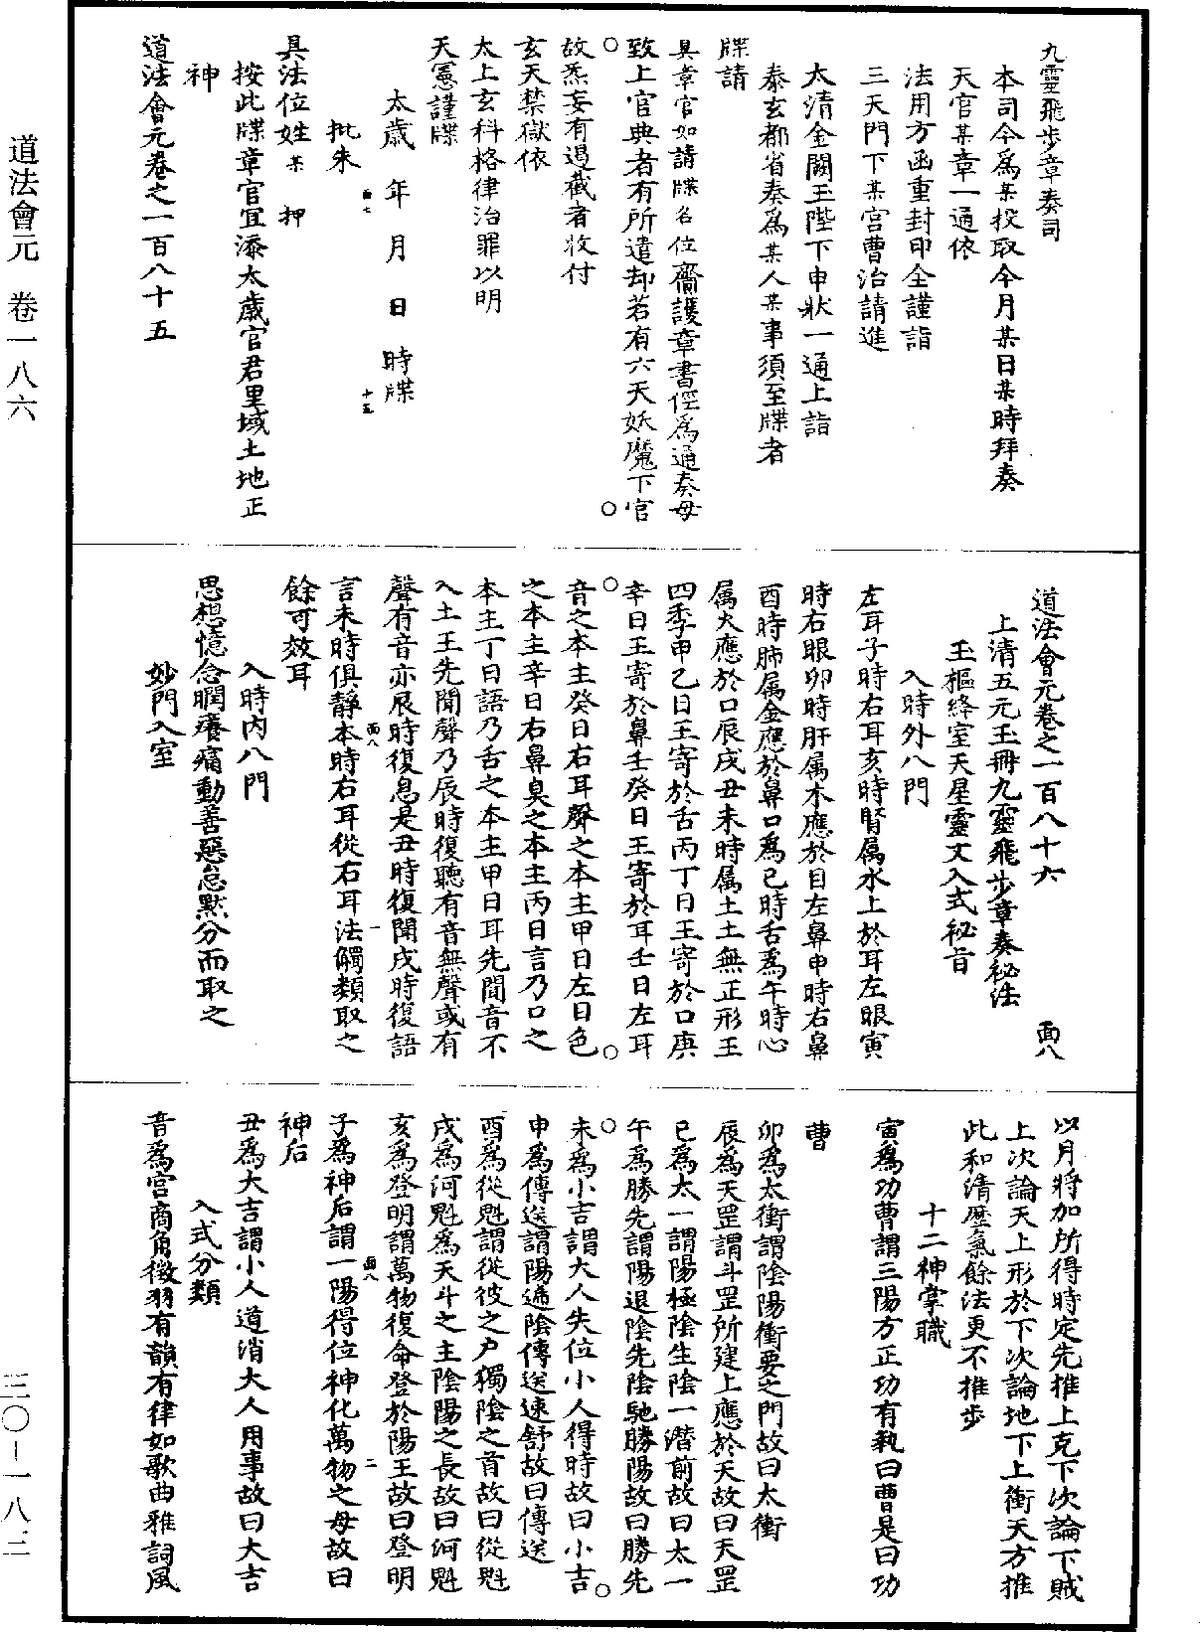 道法會元　卷一八六
三〇－一八二
九靈飛步章奏司
本司今爲某投取今月某日某時拜奏
天官某章一通依
法用方函重封印全謹詣
三天門下某宮曹治請進
太清金闕玉陛下申狀一通上詣
泰玄都省奏爲某人某事須至牒者
牒請
具章官如請牒名位齎護章書徑爲通奏毋
致上官典者有所遣却若有六天妖魔下官
故炁妄有遏截者收付
玄天禁獄依
太上玄科格律治罪以明
天憲謹牒
太歲　年　月　日　時牒
批朱
具法位姓某　押
按此牒章官宜添太歲官君里域土地正
神
道法會元卷之一百八十五
道法會元卷之一百八十六　面八
上清五元玉冊九靈飛步章奏秘法
玉樞絳室天星靈文入式秘旨
入時外八門
左耳子時右耳亥時腎属水上於耳左眼寅
時右眼卯時肝属木應於目左鼻申時右鼻
酉時肺属金應於鼻口爲巳時舌爲午時心
属火應於口辰戌丑未時属土土無正形王
四季甲乙日王寄於舌丙丁日王寄於口庚
辛日王寄於鼻壬癸日王寄於耳壬日左耳
音之本主癸日右耳聲之本主甲日左目色
之本主辛日右鼻臭之本主丙日言乃口之
本主丁日語乃舌之本主甲日耳先聞音不
入土王先聞聲乃辰時復聽有音無聲或有
聲有音亦辰時復息是丑時復聞戌時復語
言未時俱靜本時右耳從右耳法觸類取之
餘可效耳
入時內八門
思想憶念瞤癢痛動善惡怠默分而取之
妙門入室
以月將加所得時定先推上克下次論下賊
上次論天上形於下次論地下上衝天方推
此和清歷氣餘法更不推步
十二神掌職
寅爲功曹謂三陽方正功有執曰曹是曰功
曹
卯爲太衝謂陰陽衝要之門故曰太衝
辰爲天罡謂斗罡所建上應於天故曰天罡
巳爲太一謂陽極陰生陰一潛前故曰太一
午爲勝先謂陽退陰先陰馳勝陽故曰勝先
未爲小吉謂大人失位小人得時故曰小吉
申爲傳送謂陽遞陰傳送速舒故曰傳送
酉爲從魁謂從彼之戶獨陰之首故曰從魁
戌爲河魁爲天斗之主陰陽之長故曰河魁
亥爲登明謂萬物復命登於陽王故曰登明
子爲神后謂一陽得位神化萬物之母故曰
神后
丑爲大吉謂小人道消大人用事故曰大吉
入式分類
音爲宮商角徵羽有韻有律如歌曲雅詞風